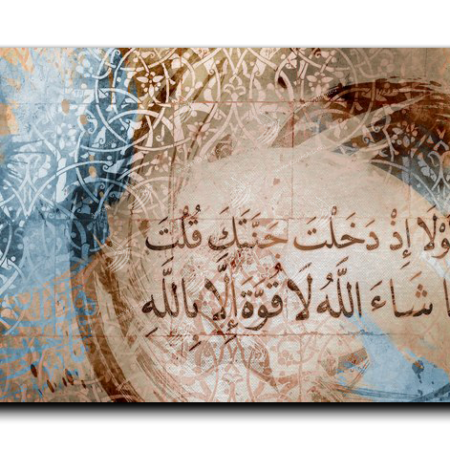 وْلَا إِذْ دَخَلْتَ جَنَّتَكَ قُلْتَ
ا شَاءَ اللَّهُ لَا قُوَّةَ إِلَّا بِاللَّهِ